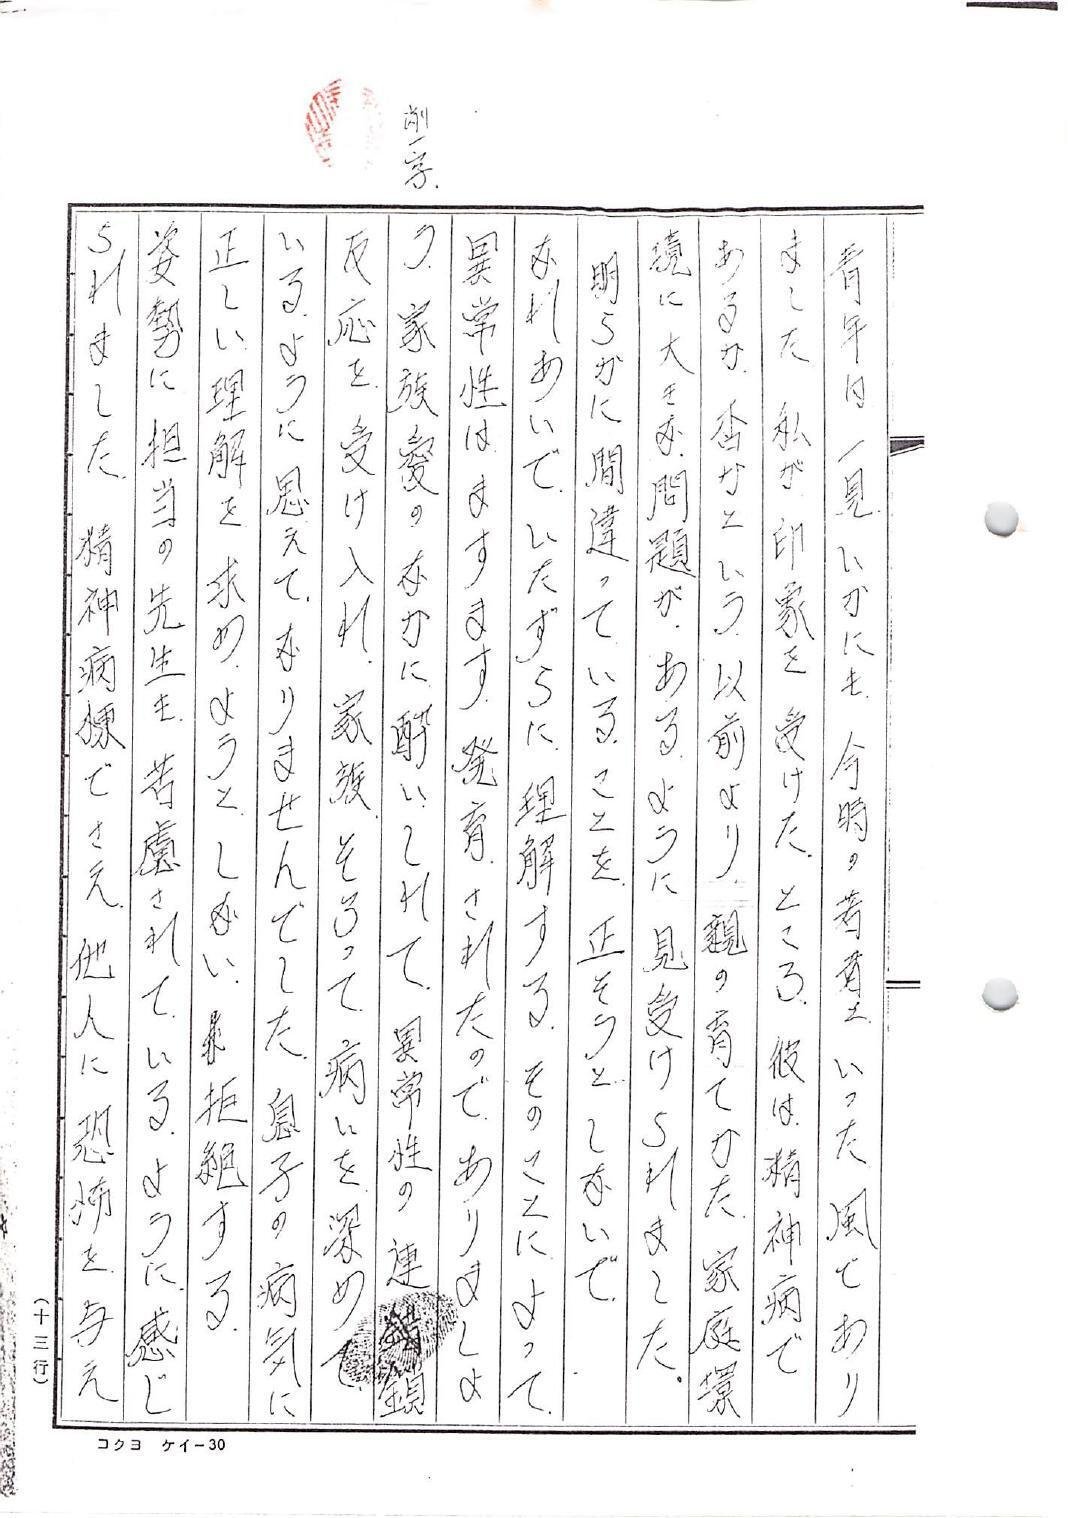 削一字.
青年は一見いかにも、今時の若者と、いった風であり
ました 私が、印象を 受けた、ところ、彼は、精神病で
あるか、否かという、以前より、親の育てかた、家庭環
境に大きな問題が、あるように見受けられました。
明らかに間違っていることを、正そうとしないで、
なれあいで、いたずらに、理解する、そのことによって、
異常性はますます、発育、されたので、ありましょ
う、家族愛のなかに、酔いしれて、異常性の連鎖
反応を、受け入れ、家族、そろって、病いを、深めて、
いる、ように思えて、なりませんでした、息子の病気に
正しい理解を求め、ようと、しない、拒絶する、
姿勢に担当の先生も、苦慮されている、ように、感じ
られました、精神病棟でさえ、他人に恐怖を、与え
(十三行)
コクヨ ケイ-30